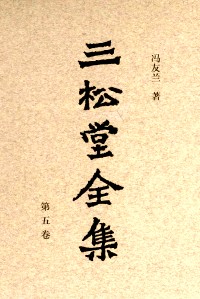 冯友兰 著
三松堂全集
第五卷